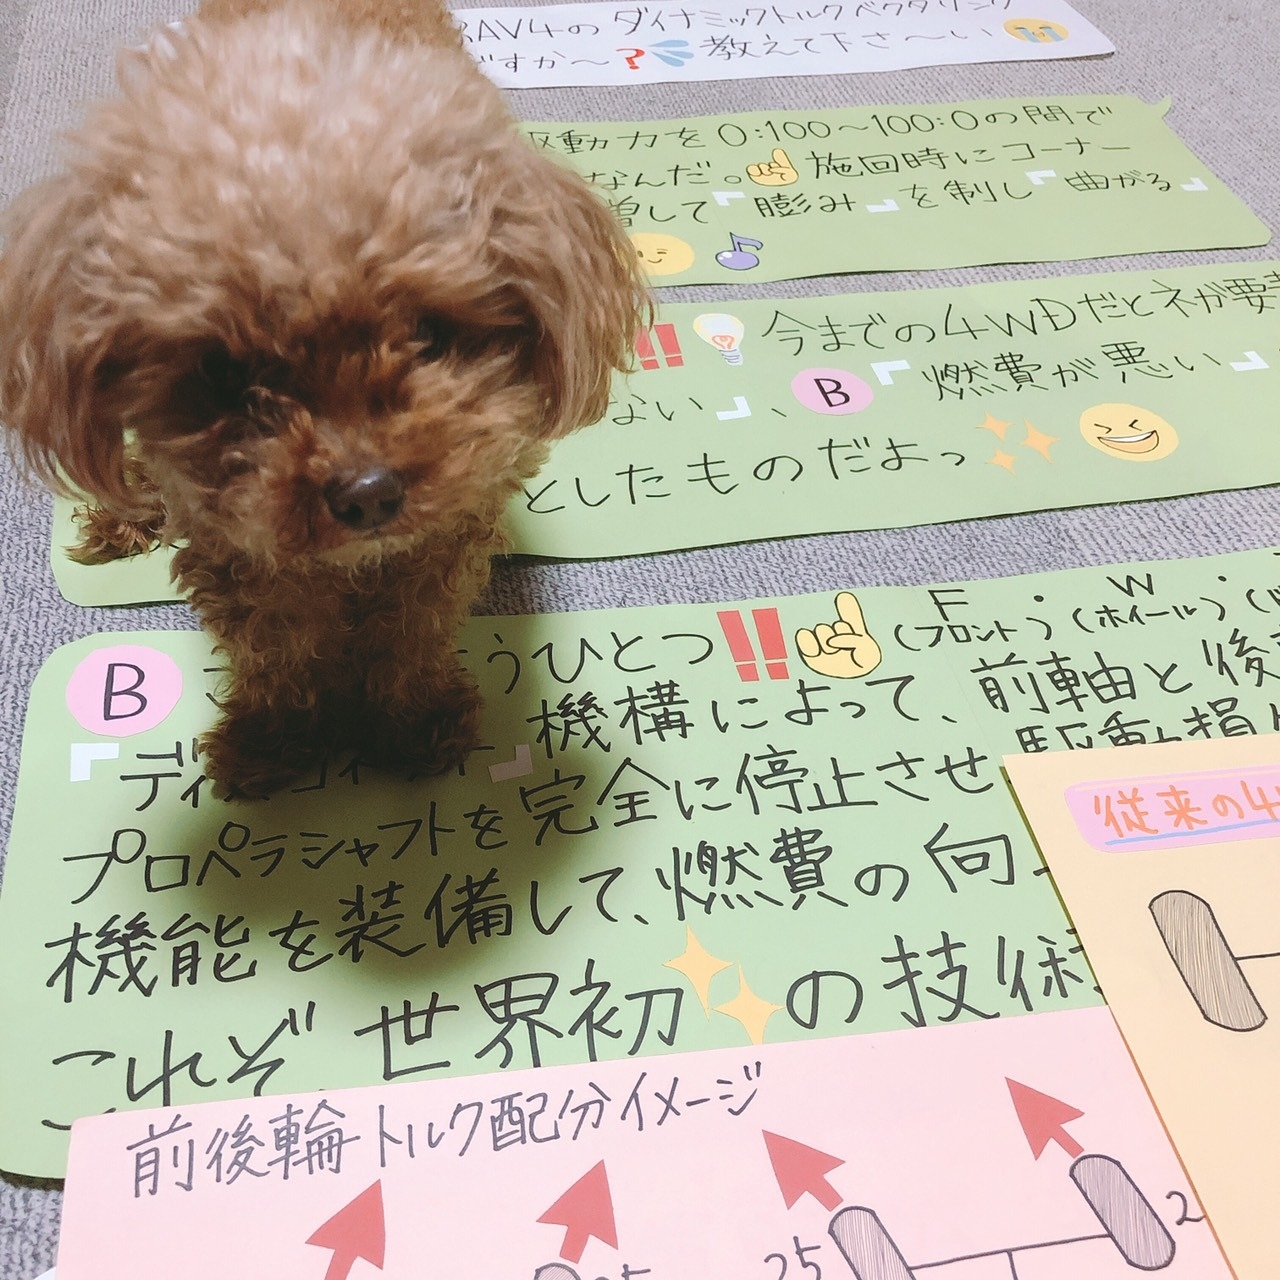 RAV4のダイナミックトルクベクタリング
ですか〜?教えて下さ〜い
駆動力を0:100〜100:0の間で
なんだ。施回時にコーナー
増して『膨み』を制し『曲がる』
!!今までの4WDだとネが要
ない』、B『燃費が悪い』
としたものだよっ
B うひとつ!!(フロント)・(ホイール)・
F・W・
『ディスコネクト』機構によって、前軸と後
駆動損
プロペラシャフトを完全に停止させ
機能を装備して、燃費の向
これぞ、世界初の技術
従来の4
前後輪トルク配分イメージ
25
2